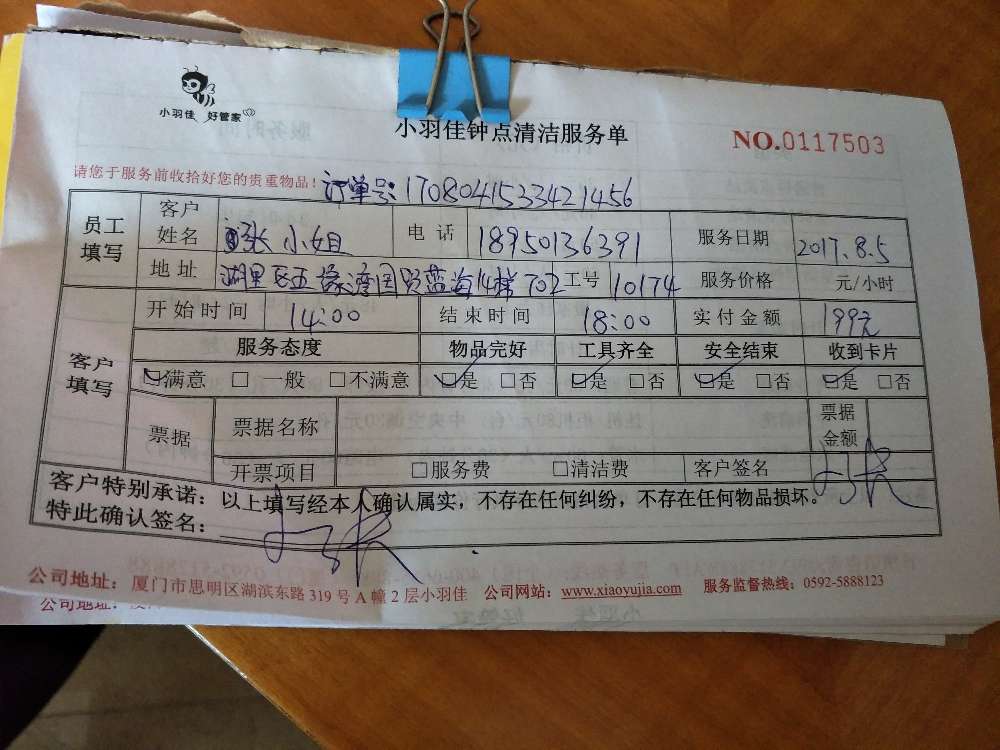 小羽佳 好管家
小羽佳钟点清洁服务单
NO.0117503
请您于服务前收拾好您的贵重物品!
订单号:1708041533421456
员工填写 客户姓名 张小姐 电话 18950136391 服务日期 2017.8.5
地址 湖里区五缘湾国贸蓝海14梯702 工号 10174 服务价格 元/小时
客户填写 开始时间 14:00 结束时间 18:00 实付金额 199元
服务态度 物品完好 工具齐全 安全结束 收到卡片
☑满意 □一般 □不满意 ☑是 □否 ☑是 □否 ☑是 □否 ☑是 □否
票据 票据名称 票据金额
开票项目 □服务费 □清洁费 客户签名
客户特别承诺:以上填写经本人确认属实,不存在任何纠纷,不存在任何物品损坏。
特此确认签名:
公司地址:厦门市思明区湖滨东路319号A幢2层小羽佳 公司网站:www.xiaoyujia.com 服务监督热线:0592-5888123
公司地址: